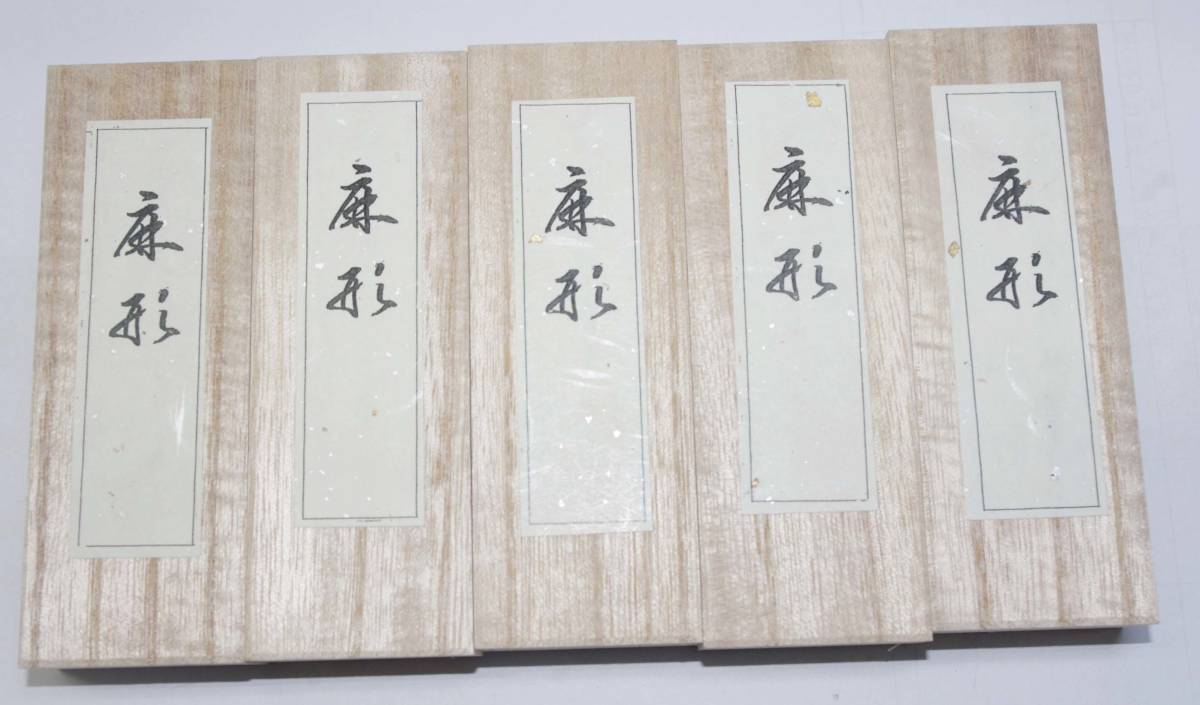 麻形
麻形
麻形
麻形
麻形